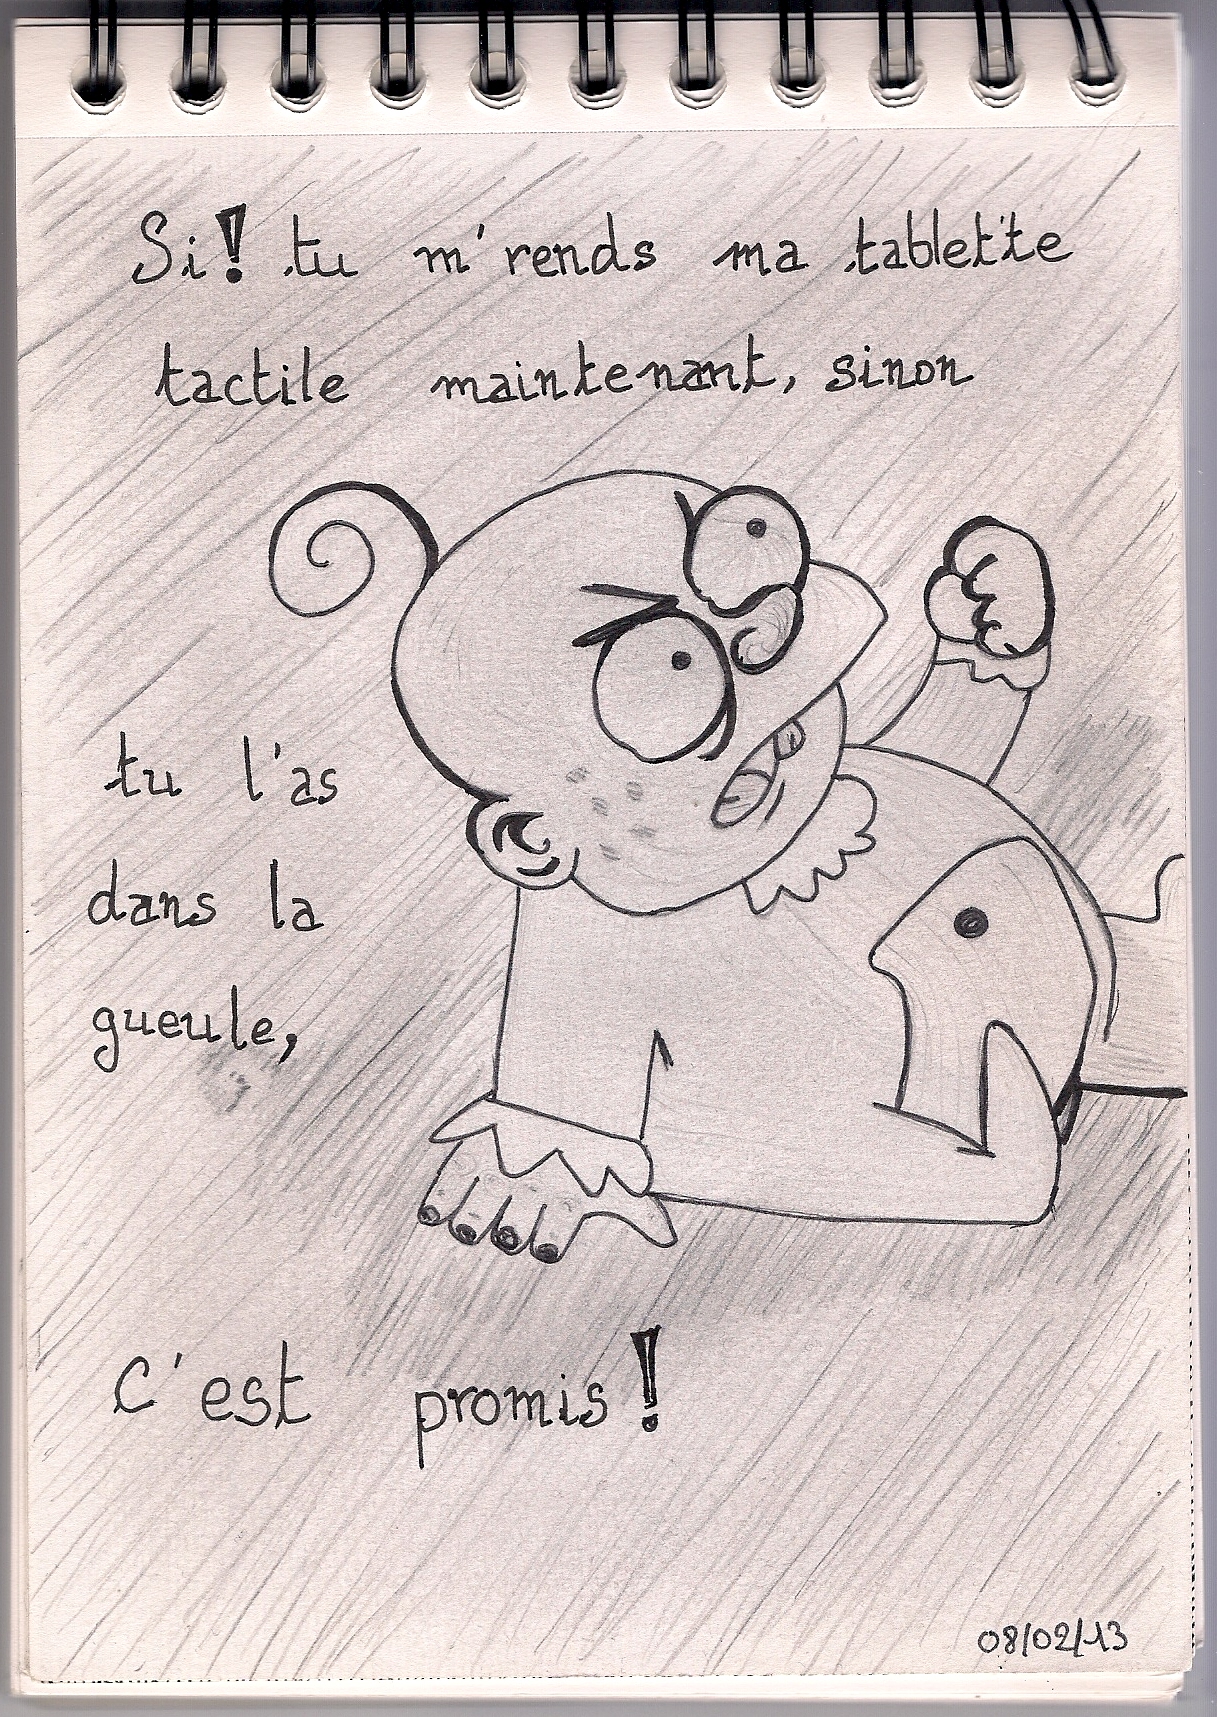 Si! tu m'rends ma tablette
tactile maintenant, sinon
tu l'as
dans la
gueule,
C'est promis!
08/02/13